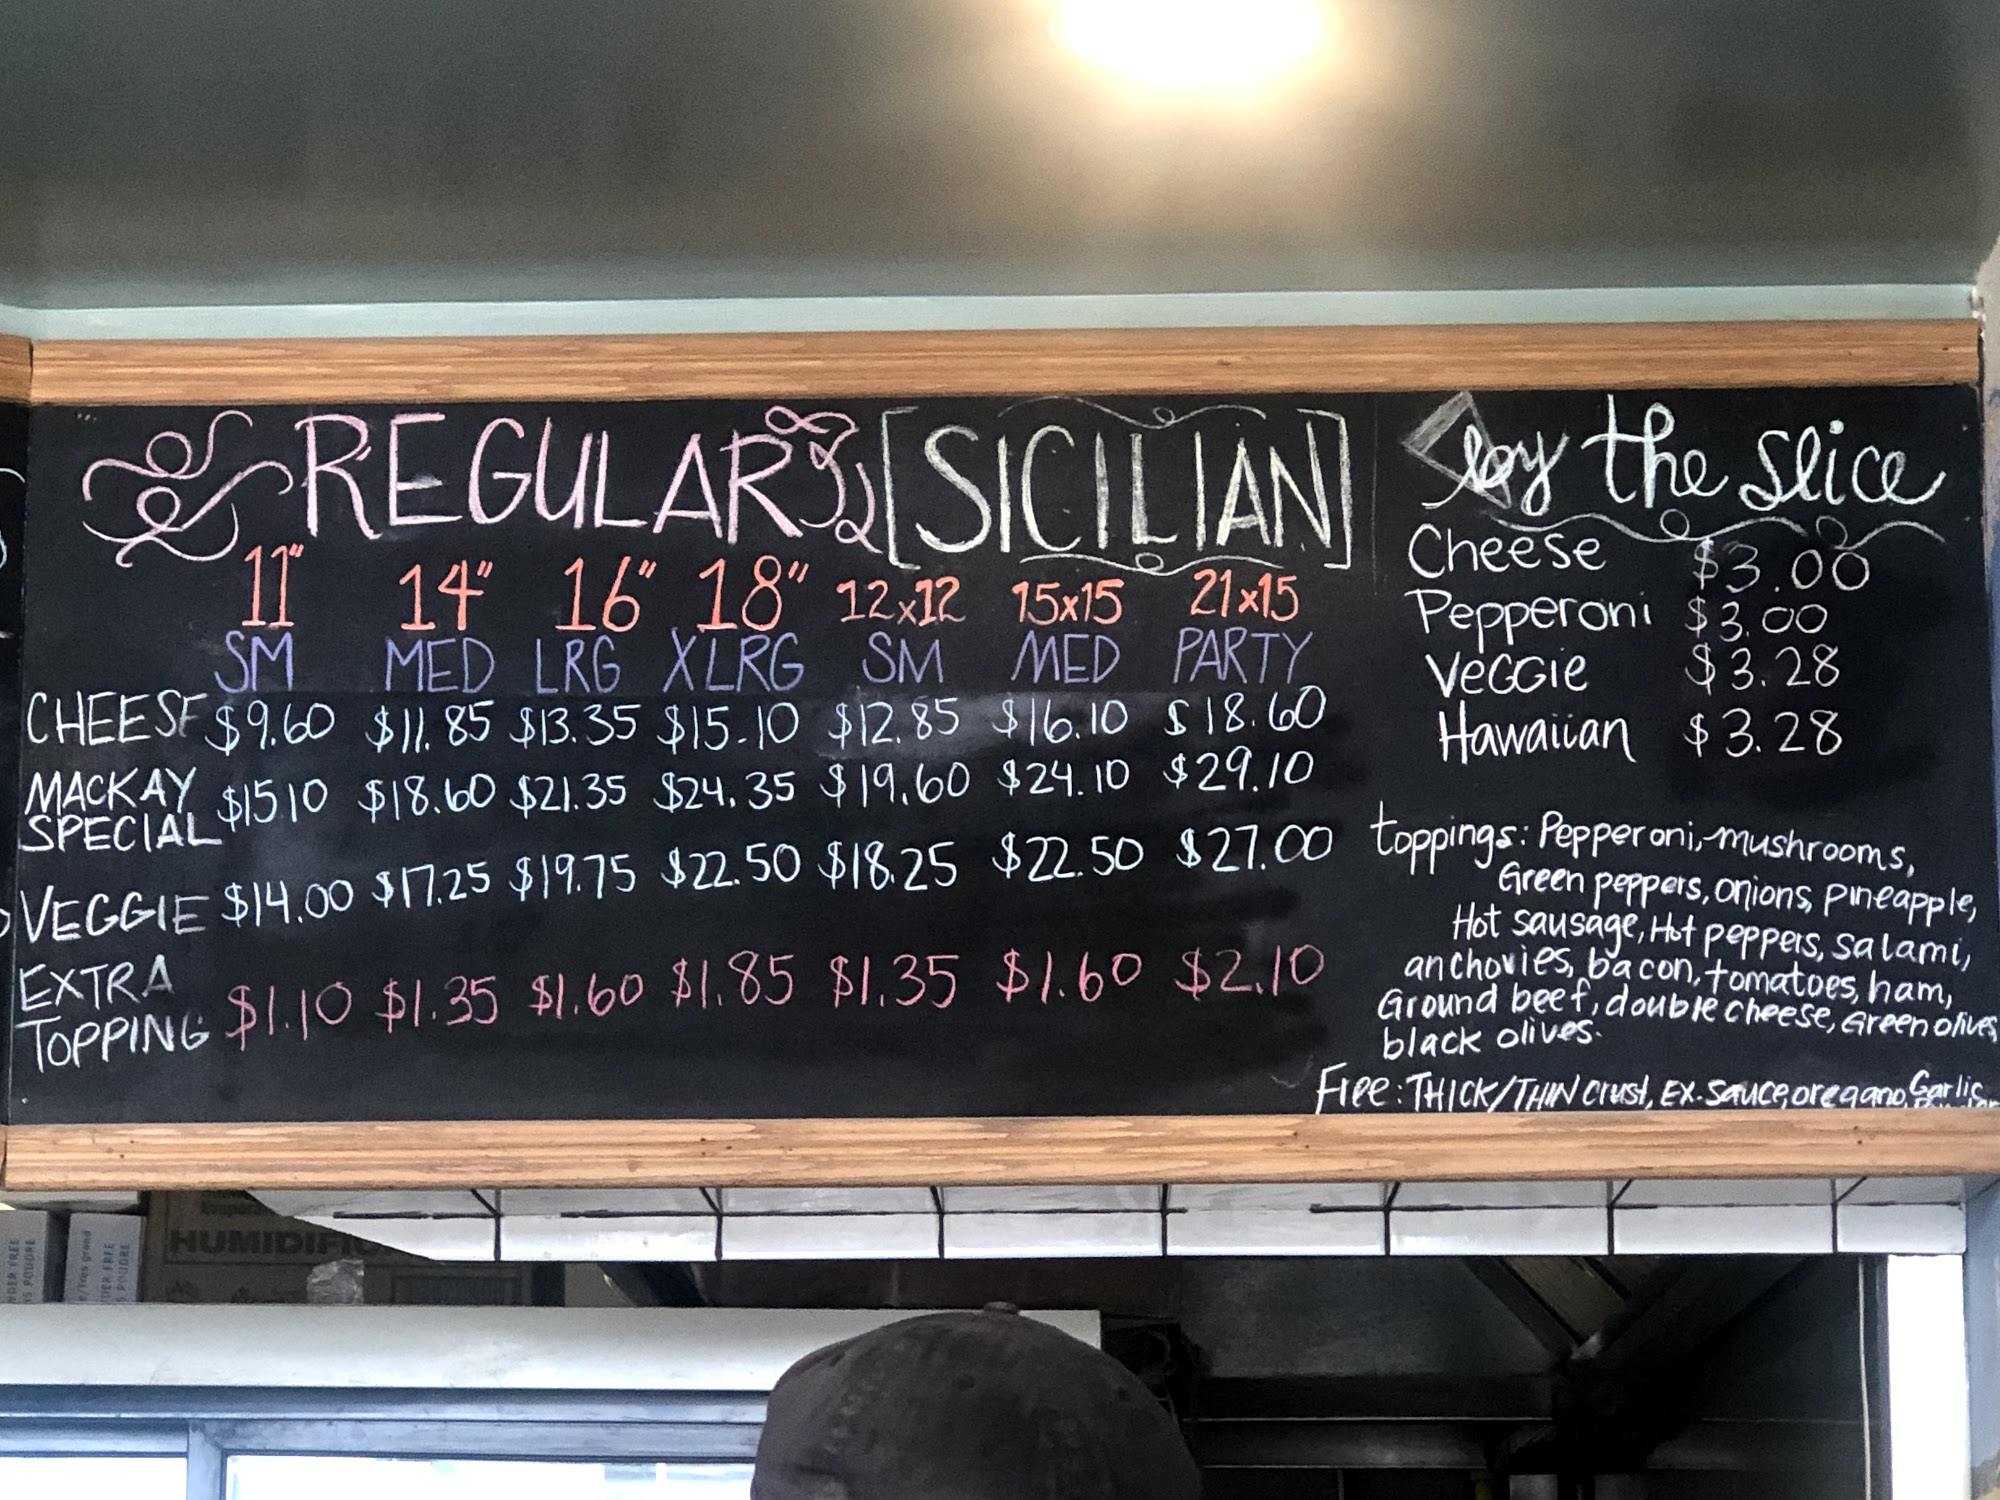 REGULAR [SICILIAN]
11" 14" 16" 18" 12x12 15x15 21x15
SM MED LRG XLRG SM MED PARTY
CHEESE $9.60 $11.85 $13.35 $15.10 $12.85 $16.10 $18.60
MACKAY
SPECIAL $1510 $18.60 $21.35 $24.35 $19.60 $24.10 $29.10
VEGGIE $14.00 $17.25 $19.75 $22.50 $18.25 $22.50 $27.00
EXTRA
TOPPING $1.10 $1.35 $1.60 $1.85 $1.35 $1.60 $2.10
by the slice
Cheese $3.00
Pepperoni $3.00
Veggie $3.28
Hawaiian $3.28
toppings: Pepperoni, mushrooms,
Green peppers, onions, pineapple,
Hot sausage, Hot peppers, salami,
anchovies, bacon, tomatoes, ham,
Ground beef, double cheese, Green olives,
black olives.
Free: THICK/THIN crust, EX. Sauce, oregano, Garlic
HUMIDIFI
POWDER FREE
POUDRE